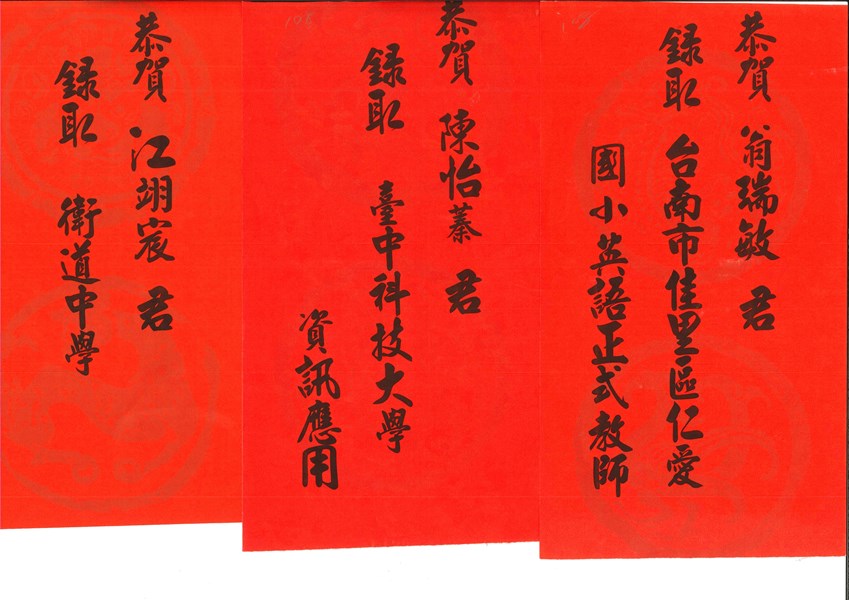 恭賀 翁瑞敏 君
錄取 台南市佳里區仁愛
國小英語正式教師
恭賀 陳怡蓁 君
錄取 臺中科技大學
資訊應用
恭賀 江翊宸 君
錄取 衛道中學